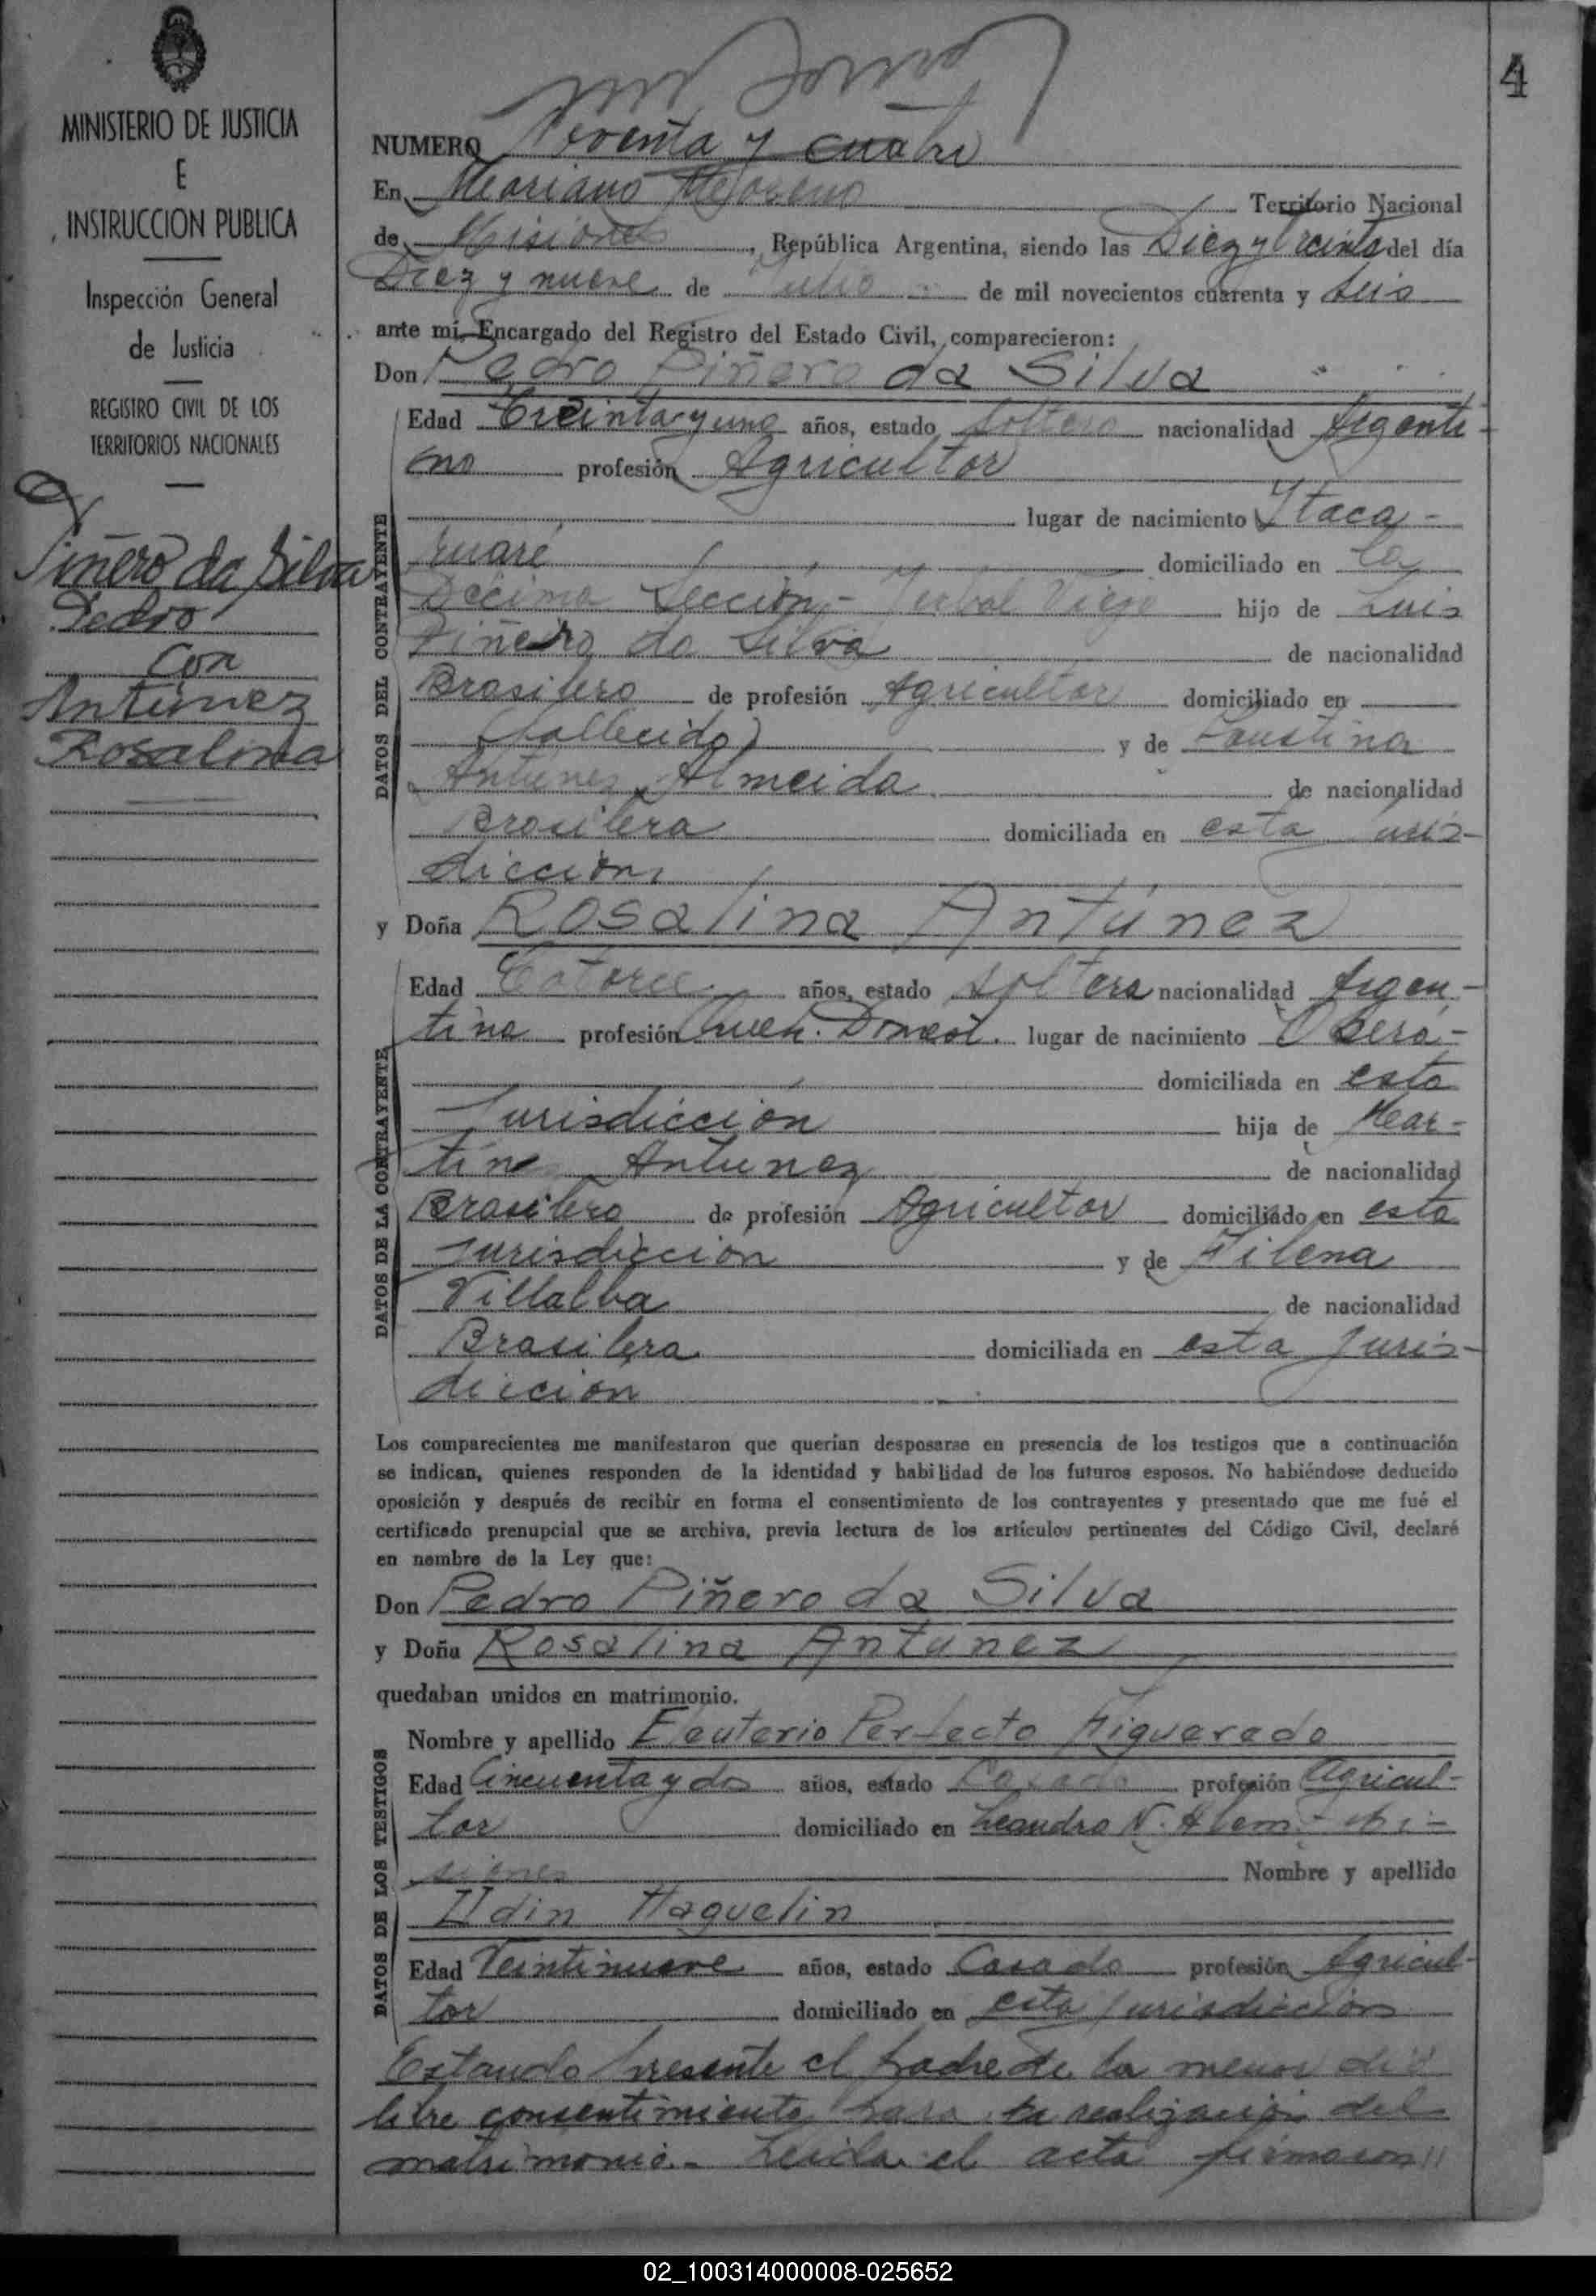 4
MINISTERIO DE JUSTICIA
E
INSTRUCCION PUBLICA
Inspección General
de Justicia
REGISTRO CIVIL DE LOS
TERRITORIOS NACIONALES
Piñero da Silva
Pedro
con
Antúnez
Rosalina
NUMERO y cuatro
En Mariano Moreno Territorio Nacional
de Misiones, República Argentina, siendo las Diez y treinta del día
Diez y nueve de Julio de mil novecientos cuarenta y seis
ante mí, Encargado del Registro del Estado Civil, comparecieron:
Don Pedro Piñero da Silva
DATOS DEL CONTRAYENTE
Edad Treinta y uno años, estado soltero nacionalidad Argenti-
no profesión Agricultor
lugar de nacimiento Itaca-
ruaré domiciliado en la
Décima Sección - Yerbal Viejo hijo de Luis
Piñeiro da Silva de nacionalidad
Brasilero de profesión Agricultor domiciliado en
(fallecido) y de Faustina
Antúnes Almeida de nacionalidad
Brasilera domiciliada en esta juris-
dicción
y Doña Rosalina Antúnez
DATOS DE LA CONTRAYENTE
Edad Catorce años, estado soltera nacionalidad Argen-
tina profesión Queh. Domést. lugar de nacimiento Oberá-
domiciliada en esta
Jurisdicción hija de Mar-
tín Antunez de nacionalidad
Brasilero de profesión Agricultor domiciliado en esta
jurisdicción y de Filena
Villalba de nacionalidad
Brasilera domiciliada en esta juris-
dicción
Los comparecientes me manifestaron que querían desposarse en presencia de los testigos que a continuación
se indican, quienes responden de la identidad y habilidad de los futuros esposos. No habiéndose deducido
oposición y después de recibir en forma el consentimiento de los contrayentes y presentado que me fué el
certificado prenupcial que se archiva, previa lectura de los artículos pertinentes del Código Civil, declaré
en nombre de la Ley que:
Don Pedro Piñero da Silva
y Doña Rosalina Antunez
quedaban unidos en matrimonio.
DATOS DE LOS TESTIGOS
Nombre y apellido Eleuterio Perfecto Figueredo
Edad Cincuenta y dos años, estado Casado profesión Agricul-
tor domiciliado en Leandro N. Alem - Mi-
siones Nombre y apellido
Udin Haquelin
Edad Veintinueve años, estado Casado profesión Agricul-
tor domiciliado en esta jurisdicción
Estando presente el padre de la menor dió
libre consentimiento para la realización del
matrimonio.- Leída el acta firmaron//
02_100314000008-025652